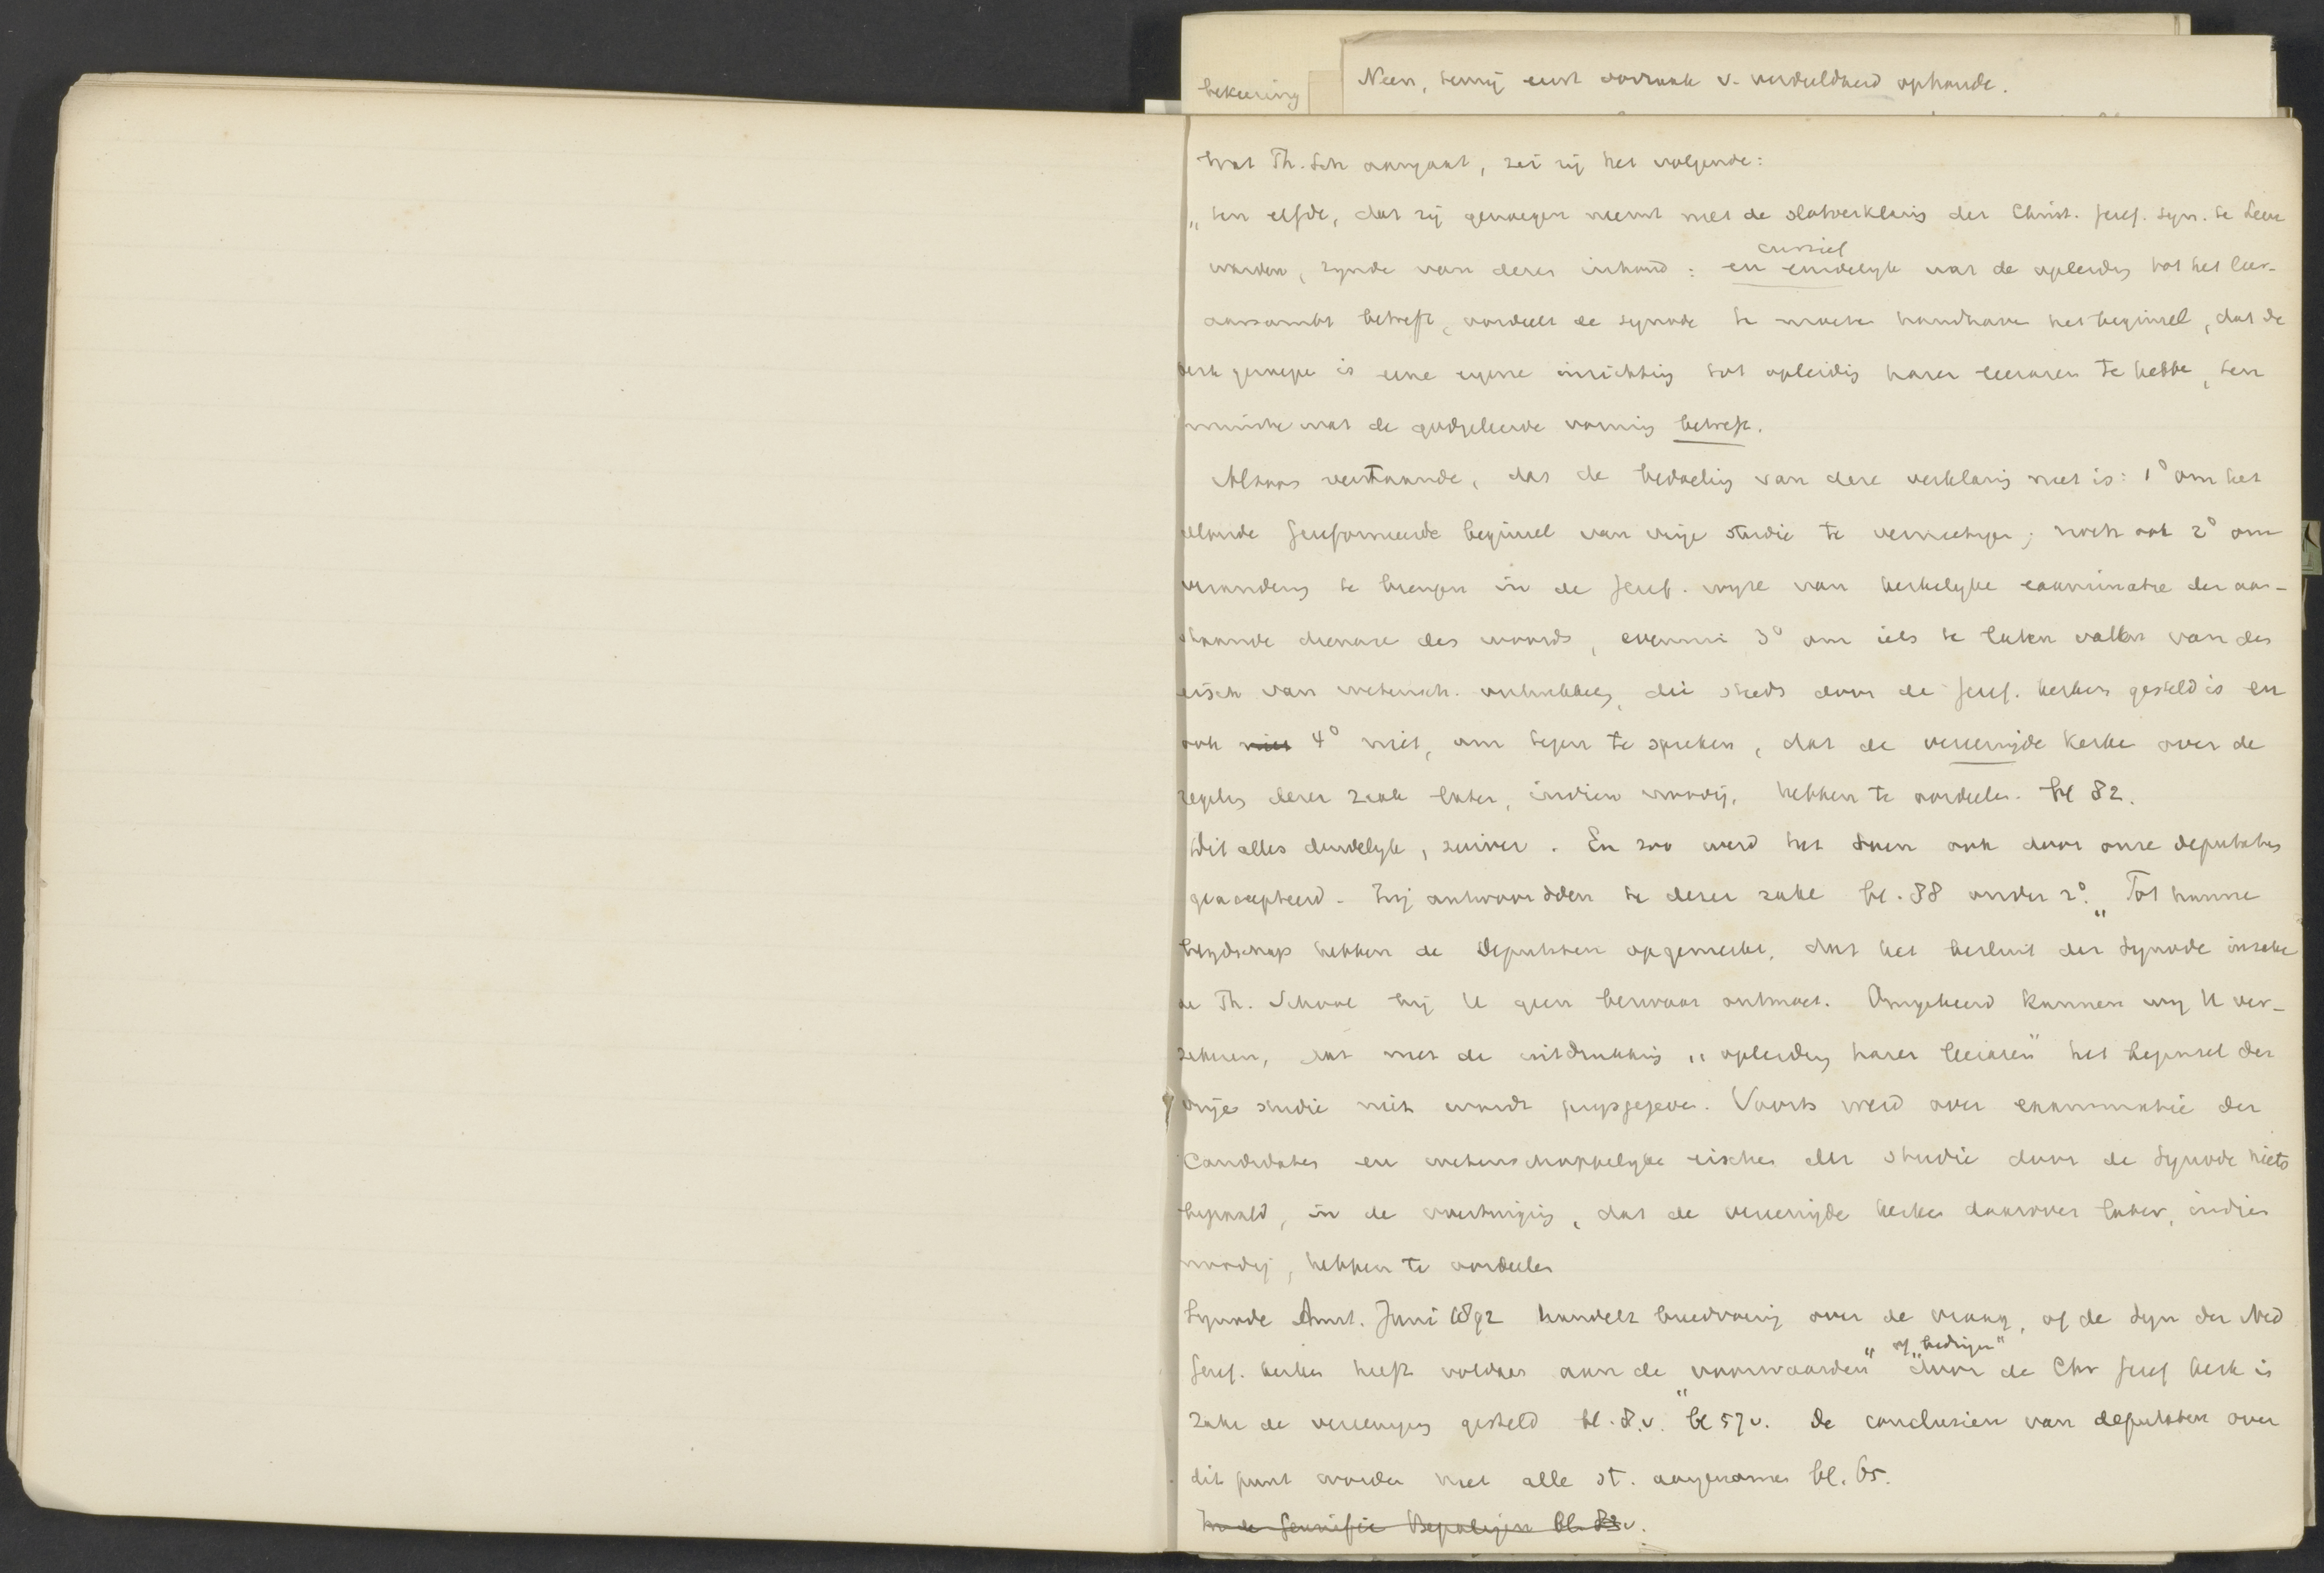 bekeering
Neen, tenzij eerst oorzaak v. verdeeldheid ophoude.
Wat Th. Sch aangaat, zei zij het volgende:
„ten elfde, dat zij genoegen neemt met de slotverklaring der Christ. Geref. Syn. te Leeu
cursief
warden, zynde van dezen inhoud: en eindelyk wat de opleiding tot het leer-
aarsambt betreft, oordeelt de synode te moeten handhaven het beginsel, dat de
kerk geroepen is eene eigene inrichting tot opleiding harer leeraren te hebben, ten
minste wat de godgeleerde vorming betreft.
Alzoo verstaande, dat de bedoeling van deze verklaring niet is: 1° om het
aloude Gereformeerde beginsel van vrije studie te vernietigen; noch ook 2° om
verandering te brengen in de Geref. wyze van kerkelyke examinatie der aan-
staande dienaren des woords, evenmin 3° om iets te laten vallen van den
eisch van wetensch. ontwikkeling, die steeds door de Geref. kerken gesteld is en
ook niet 4° niet, om tegen te spreken, dat de vereenigde kerken over de
regeling dezer zaak later, indien noodig, hebben te oordeelen. bl 82.
Dit alles duidelyk, zuiver. En zoo werd het toen ook door onze deputaten
geaccepteerd. Zij antwoordden te dezer zake bl. 88 onder 2°. „Tot hunne
blydschap hebben de Deputaten opgemerkt, dat het besluit der Synode inzake
de Th. School bij U geen bezwaar ontmoet. Omgekeerd kunnen wij U ver-
zekeren, dat met de uitdrukking „opleiding harer leeraren" het beginsel der
vrije studie niet wordt prijsgegeven. Voorts werd over examinatie der
Candidaten en wetenschappelyke eischen der studie door de Synode niets
bepaald, in de overtuiging, dat de vereenigde kerken daarover later, indien
noodig, hebben te oordeelen
Synode Amst. Juni 1892 handelt breedvoerig over de vraag, of de Syn der Ned
of „bedingen"
Geref. kerken heeft voldaan aan de „voorwaarden" door de Chr Geref kerk in
zake de vereeniging gesteld bl. 8.v. bl 57 v. De conclusien van deputaten over
dit punt worden met alle st. aangenomen bl. 65.
In de Bepalingen bl. 82 v.